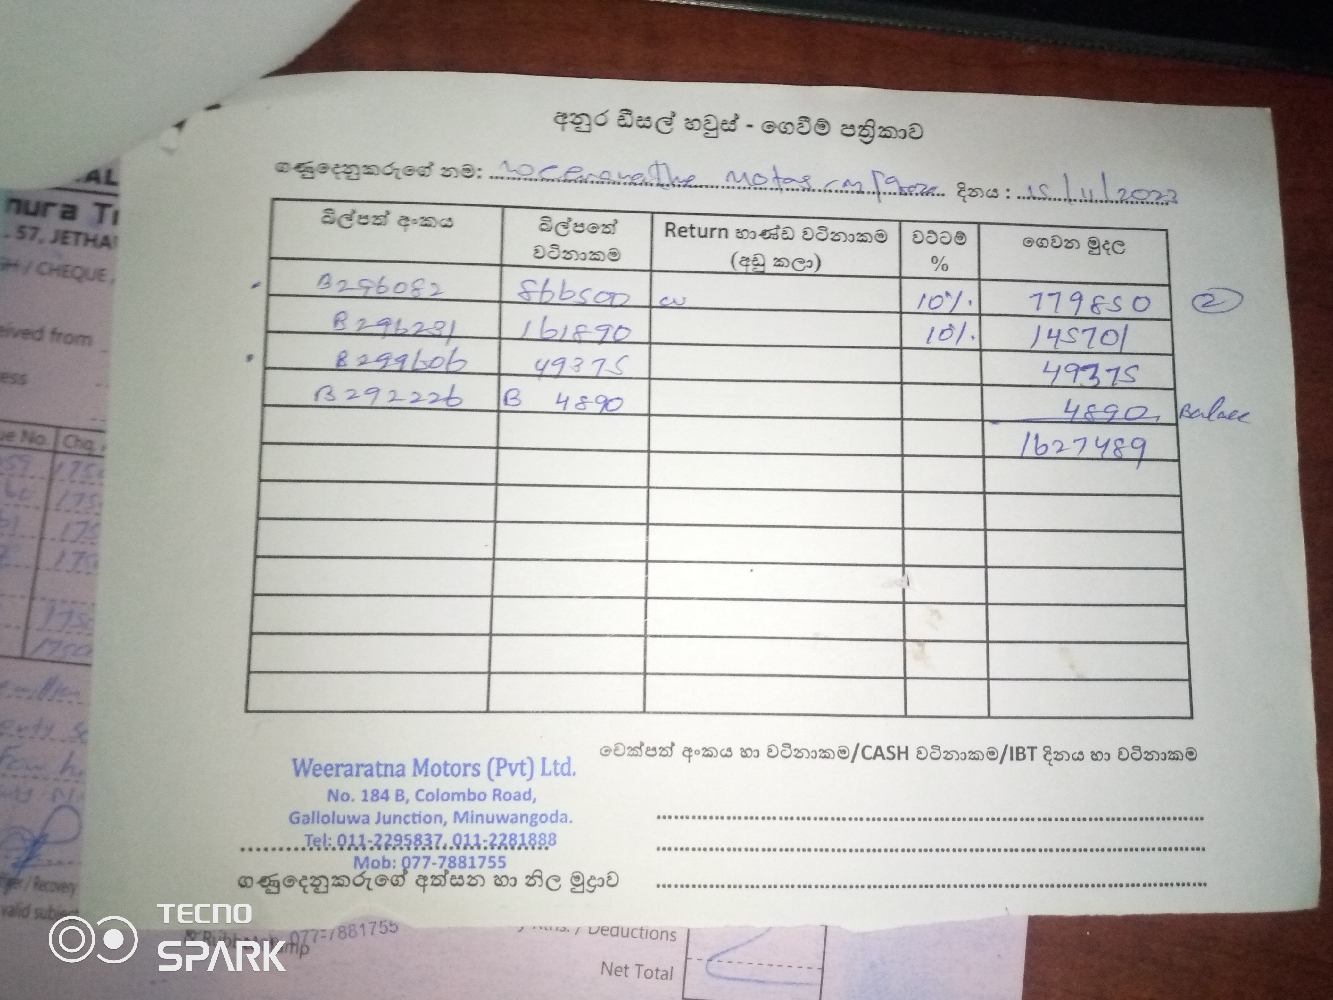 අනුර ඩීසල් හවුස් - ගෙවීම් පත්‍රිකාව
ගණුදෙනුකරුගේ නම: Weerarathe Motors දිනය : 15/11/2023
බිල්පත් අංකය බිල්පතේ වටිනාකම Return භාණ්ඩ වටිනාකම (අඩු කලා) වට්ටම් % ගෙවන මුදල
B296082 866500 10%. 779850 2
B296281 161890 10%. 145701
B299606 49375 49375
B292226 B 4890 4890 Balace
1627489
චෙක්පත් අංකය හා වටිනාකම/CASH වටිනාකම/IBT දිනය හා වටිනාකම
Weeraratna Motors (Pvt) Ltd.
No. 184 B, Colombo Road,
Galloluwa Junction, Minuwangoda.
Tel: 011-2295837, 011-2281888
Mob: 077-7881755
ගණුදෙනුකරුගේ අත්සන හා නිල මුද්‍රාව
57, JETHA
/ CHEQUE
eived from
ess
ue No. Chq.
/ Recovery
valid subje
077-7881755
/ Deductions
Net Total
TECNO
SPARK